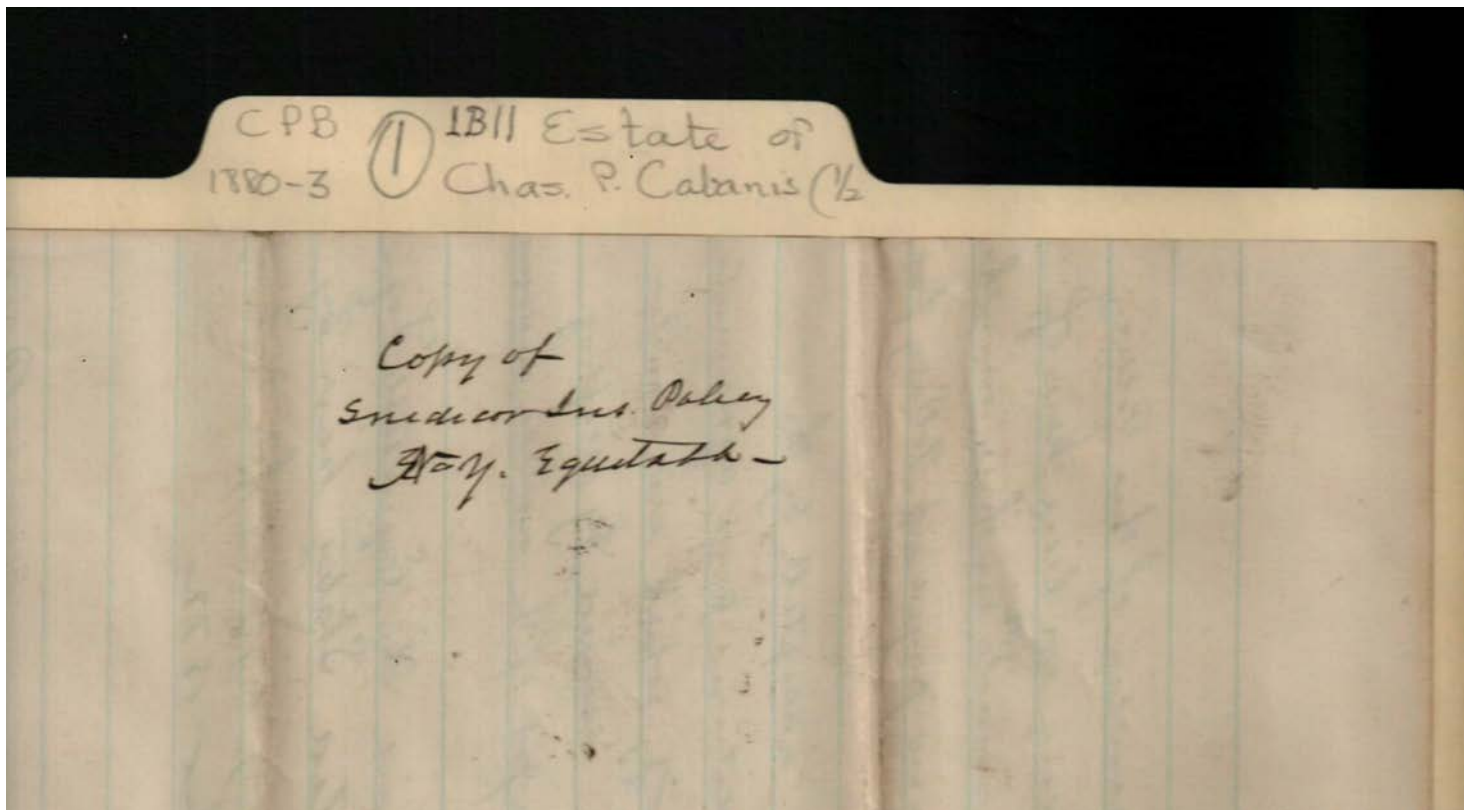 CPB ① 1B11 Estate of
1880-3 Chas. P. Cabanis (1/2
Copy of
Snedicor Ins. Policy
N-Y. Equitable -